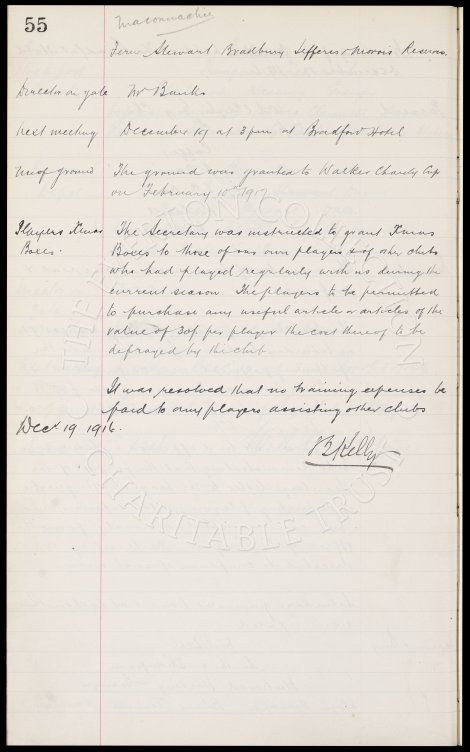 55
Maconnachie
Fern Stewart Bradbury Jefferis & Morris Reserves.
Director on gate Mr Banks
Next meeting December 19 at 3 pm at Bradford Hotel
Use of ground The ground was granted to Walker Charity Cup
on February 10th 1917
Players Xmas Boxes. The Secretary was instructed to grant Xmas
Boxes to those of our own players & of other clubs
who had played regularly with us during the
current season. The players to be permitted
to purchase any useful article or articles of the
value of 30/- per player the cost thereof to be
defrayed by the club
It was resolved that no training expenses be
paid to any players assisting other clubs
Decr 19 1916.
B Kelly
CHARITABLE TRUST